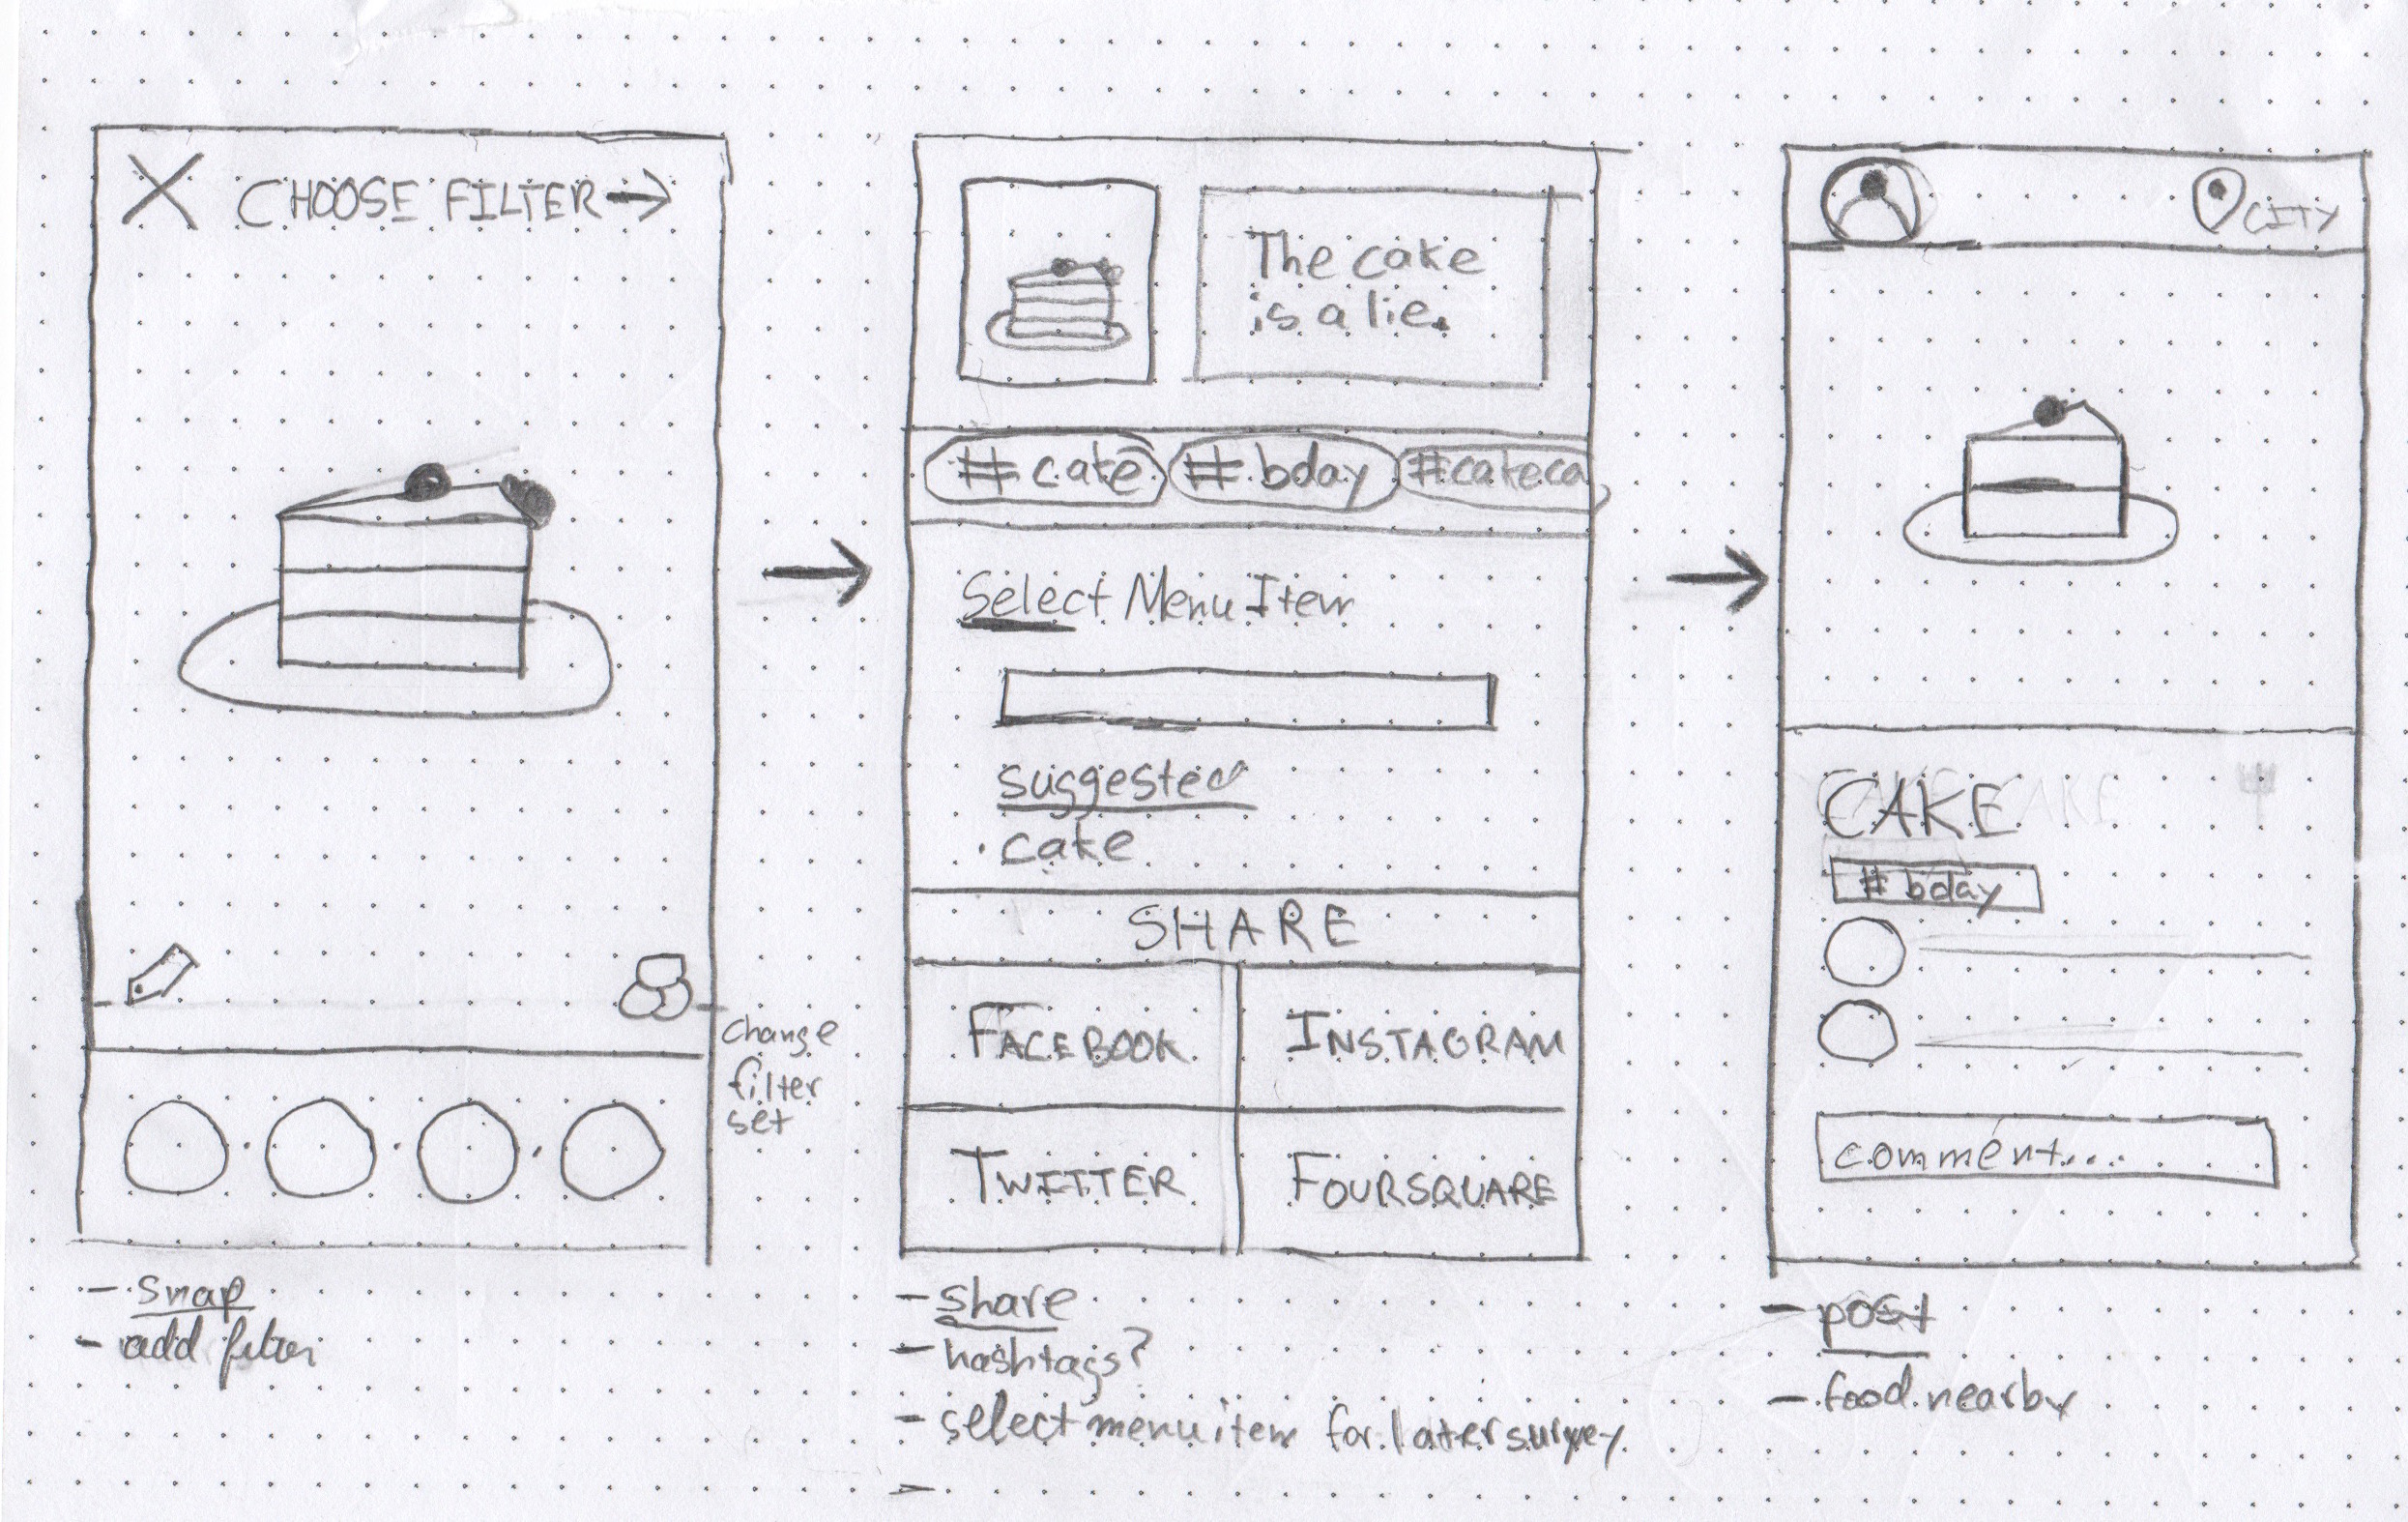 CHOOSE FILTER
change
filter
set
- snap
- add filter
The cake
is a lie.
# cake
# bday
#cakeca
Select Menu Item
suggested
· cake
SHARE
FACEBOOK
INSTAGRAM
TWITTER
FOURSQUARE
- share
- hashtags?
- select menu item for later survey
-
CITY
CAKE
# bday
comment...
- post
- food nearby